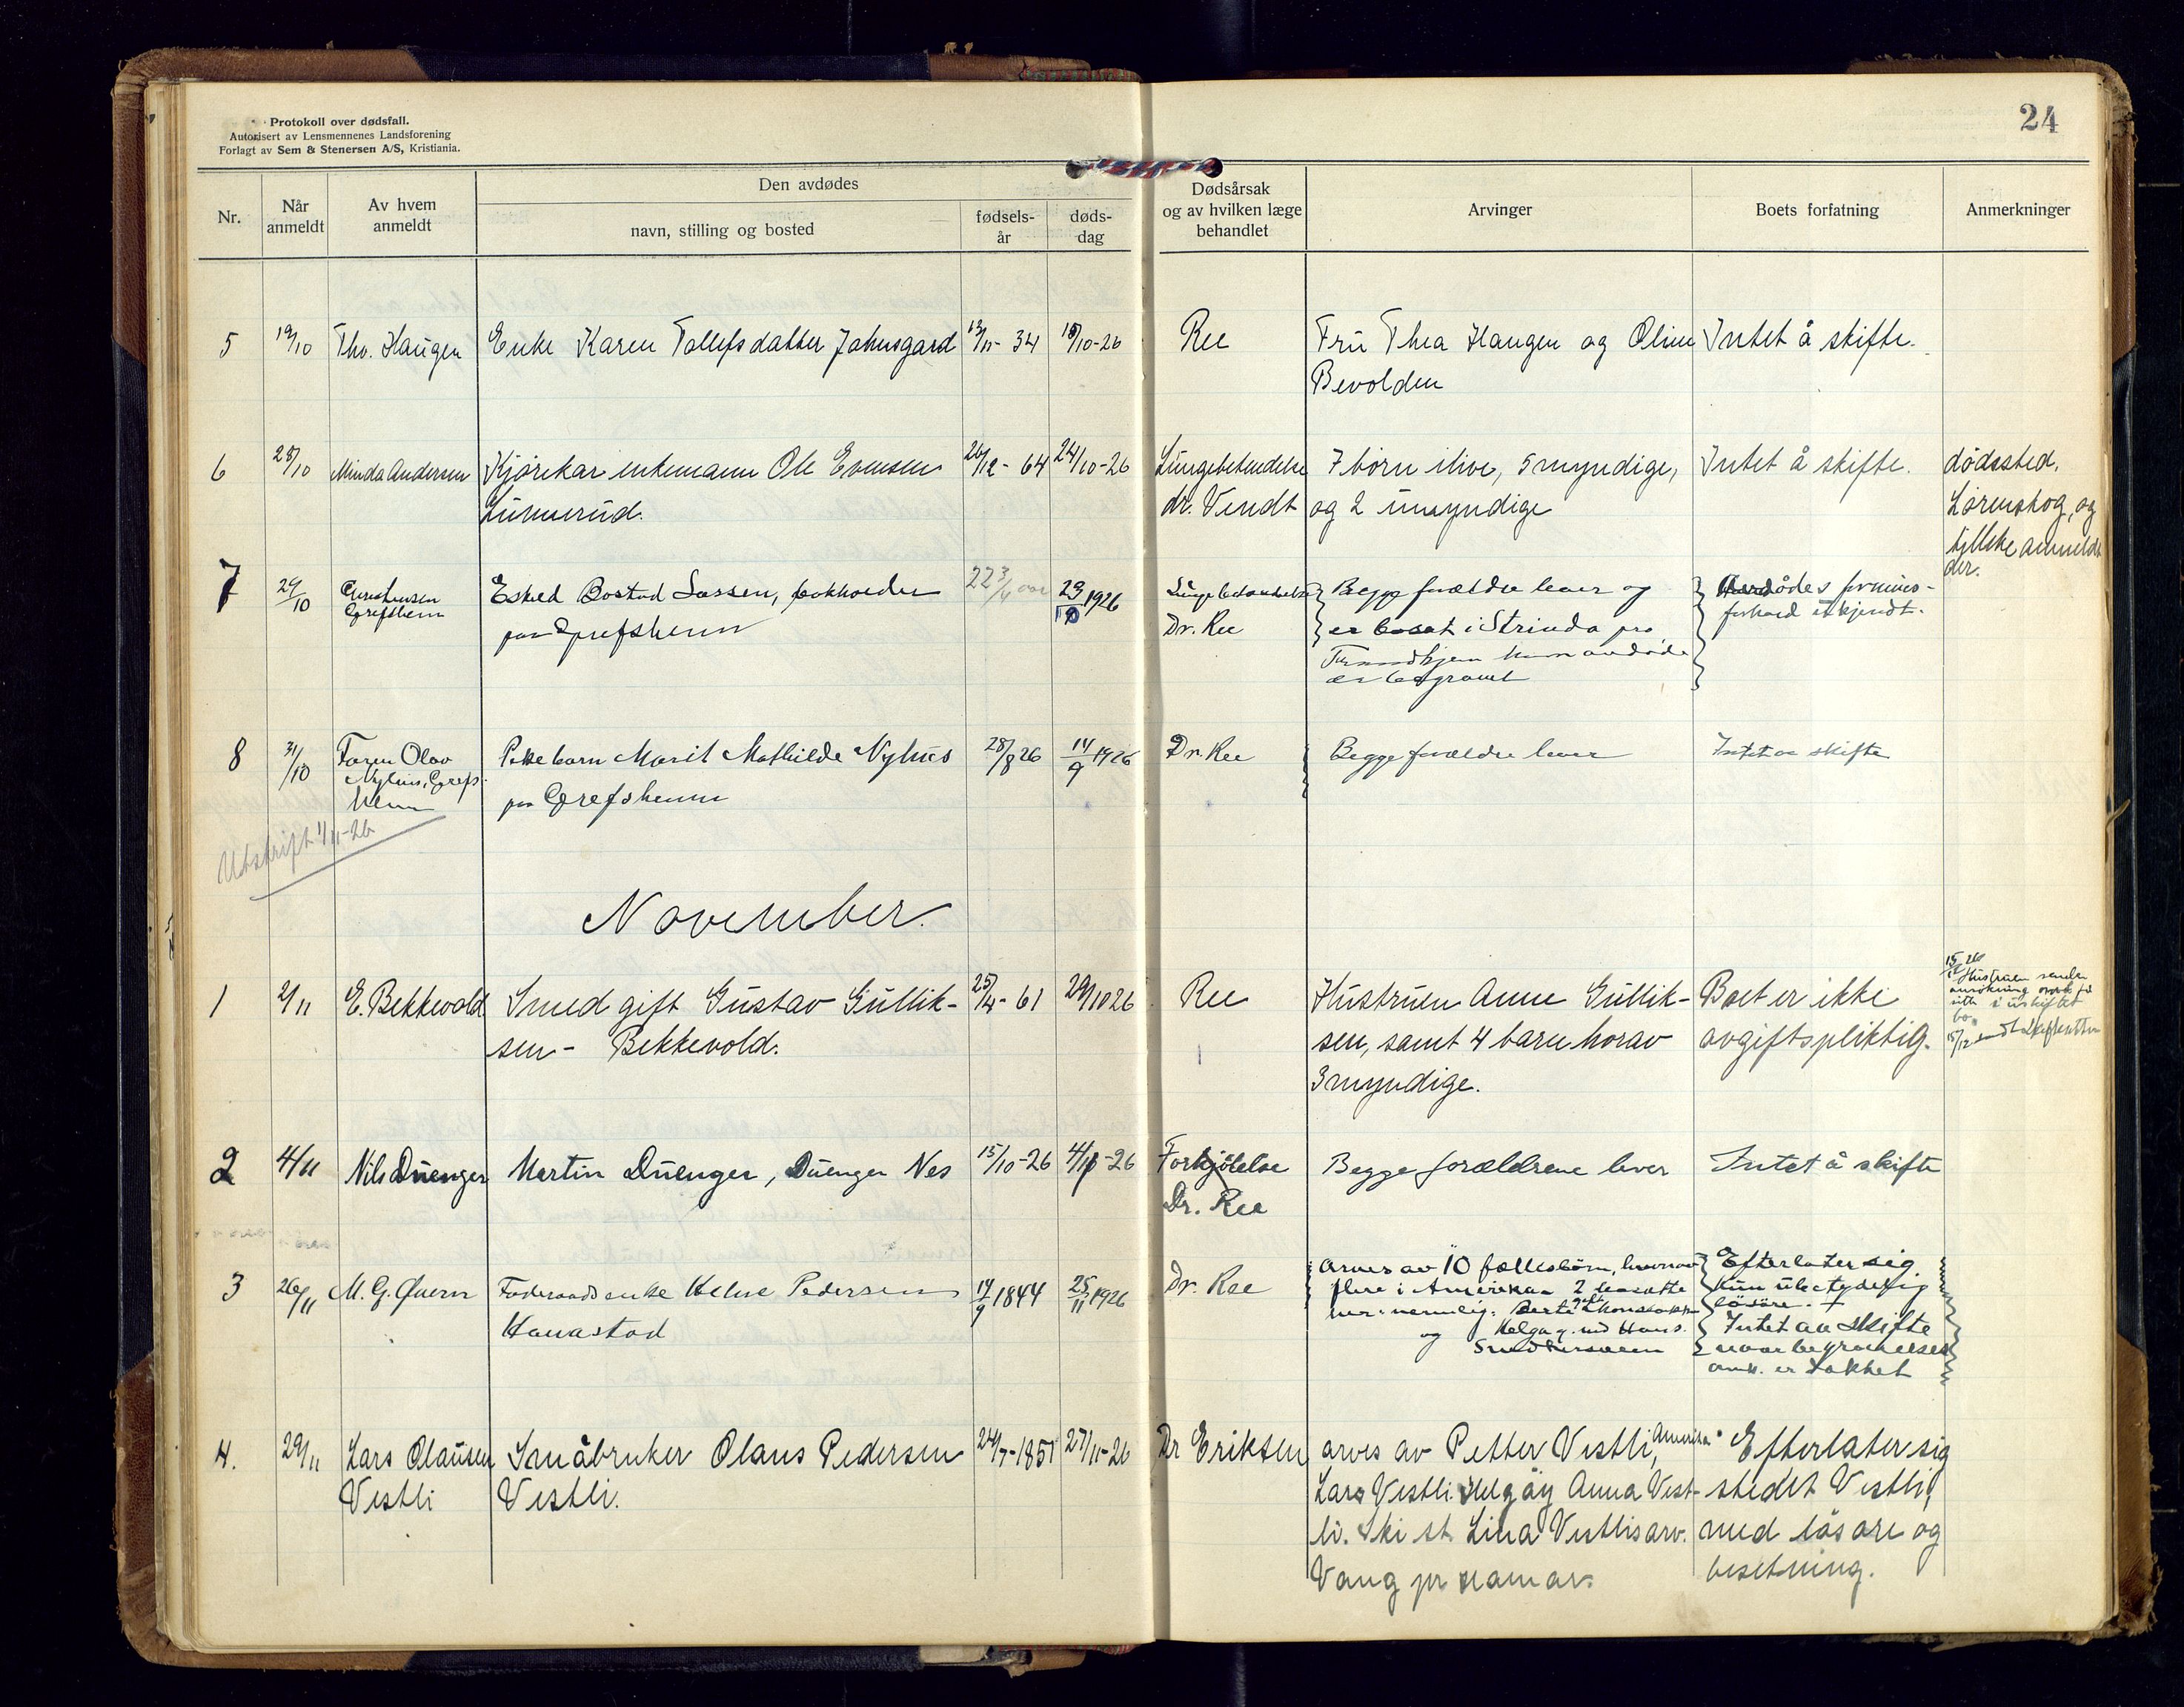 Protokoll over dødsfall.
Autorisert av Lensmennenes Landsforening
Forlagt av Sem & Stenersen A/S, Kristiania.
24
Nr.
Når anmeldt
Av hvem anmeldt
Den avdødes
navn, stilling og bosted
fødsels-år
døds-dag
Dødsårsak og av hvilken læge behandlet
Arvinger
Boets forfatning
Anmerkninger
5 19/10 Tho. Haugen Enke Karen Tollefsdatter Jahnsgard 13/11- 34 18/10-26 Ree Fru Thea Haugen og Oline Intet å skifte.
Bevolden
6 28/10 Minda Andersen Kjørekar enkemann Ole Evensen 26/12- 64 24/10-26 Lungebetendelse 7 børn ilive, 5 myndige, Intet å skifte. dødssted,
Lunnerud. dr. Vendt og 2 umyndige Lørenskog, og
til ikke anmeldt
der.
7 29/10 Christensen Eskild Bostad Lassen, bokholder 22 3/4 aar 29/10 1926 Lungebetændelse Begge forældre lever og Avdødes formues-
Grefsheim paa Grefsheim Dr. Ree er bosat i Strinda pr. forhold ukjendt.
Trondhjem hvor avdøde
er begravet
8 31/10 Faren Olav Pikebarn Marit Mathilde Nyhus 28/8 26 14/9 1926 Dr. Ree Begge forældre lever Intet aa skifte
Nyhus, Grefs- paa Grefsheim
heim
Utskrift 1/11-26
November.
1 2/11 E. Bekkevold Smed gift Gustav Gullik- 25/4- 61 29/10 26 Ree Hustruen Anne Gullik- Boet er ikke
sen - Bekkevold. sen, samt 4 barn horav avgiftspliktig.
3 myndige.
15/12 26 Hustruen sender
ansøkning om å få
sitte i uskiftet
bo.
15/12 sendt Skifteretten
2 4/11 Nils Duenger Martin Duenger, Duenger Nes 15/10-26 4/11-26 Forkjølelse Begge forældrene lever Intet å skifte
Dr. Ree
3 26/11 M. G. Qvern Føderaadsenke Helene Pedersen 14/9 1844 25/11 1926 Dr. Ree Arves av 10 fællesbørn, hvorav Efterlater sig
Hanastad flere i Amerika 2 bosatte kun ubetydelig
her: nemlig: Berte gift løsøre.
og Helga g. med Hans Intet aa skifte
naar begravelses
omk. er dækket
4. 29/11 Lars Olausen Småbruker Olaus Pedersen 24/7-1851 27/11-26 Dr Eriksen arves av Petter Vestli, Amerika Efterlater sig
Vestli Vestli. Lars Vestli. Helgøy Anna Vest- stedet Vestli,
li. Ski st. Lina Vestlisarv. med løsøre og
Vang pr Hamar. besetning.